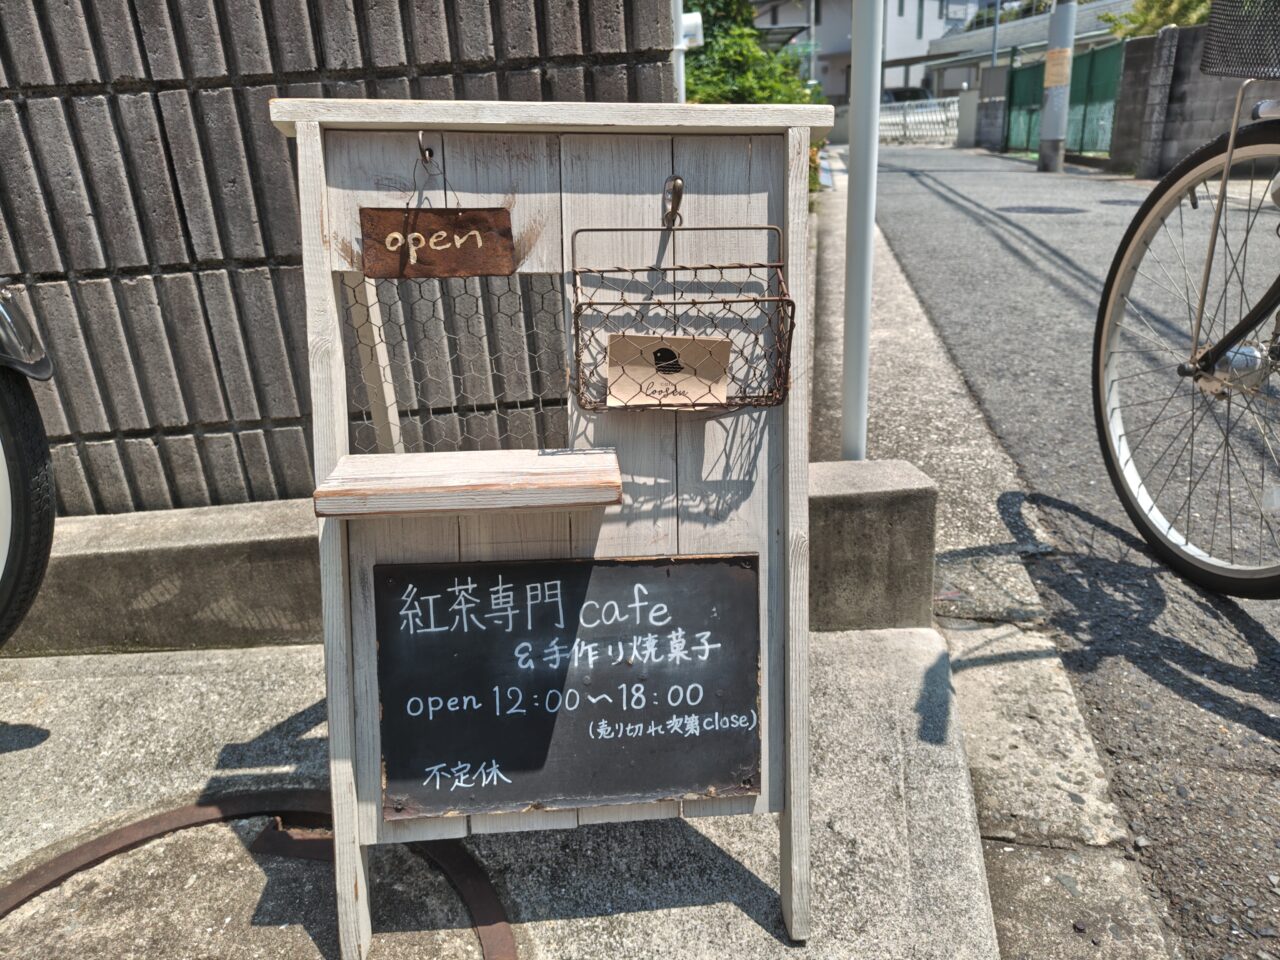 open
cafe
loosen
紅茶専門cafe
&手作り焼菓子
open 12:00〜18:00
(売り切れ次第close)
不定休